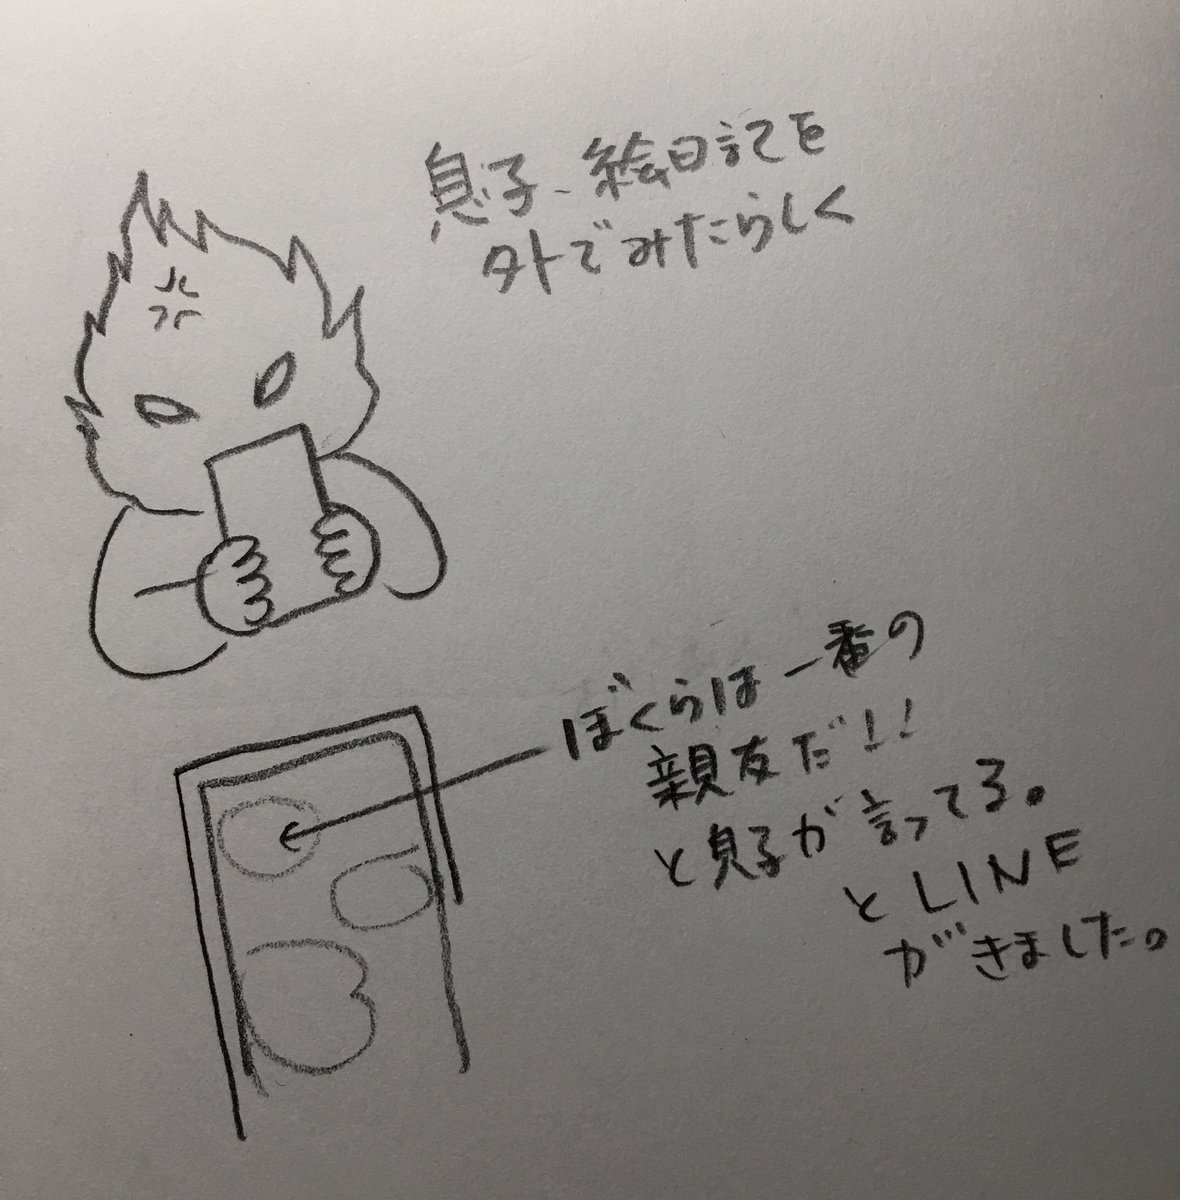 息子、絵日記を
外でみたらしく
ぼくらは一番の
親友だ!!
と息子が言ってる。
とLINE
がきました。